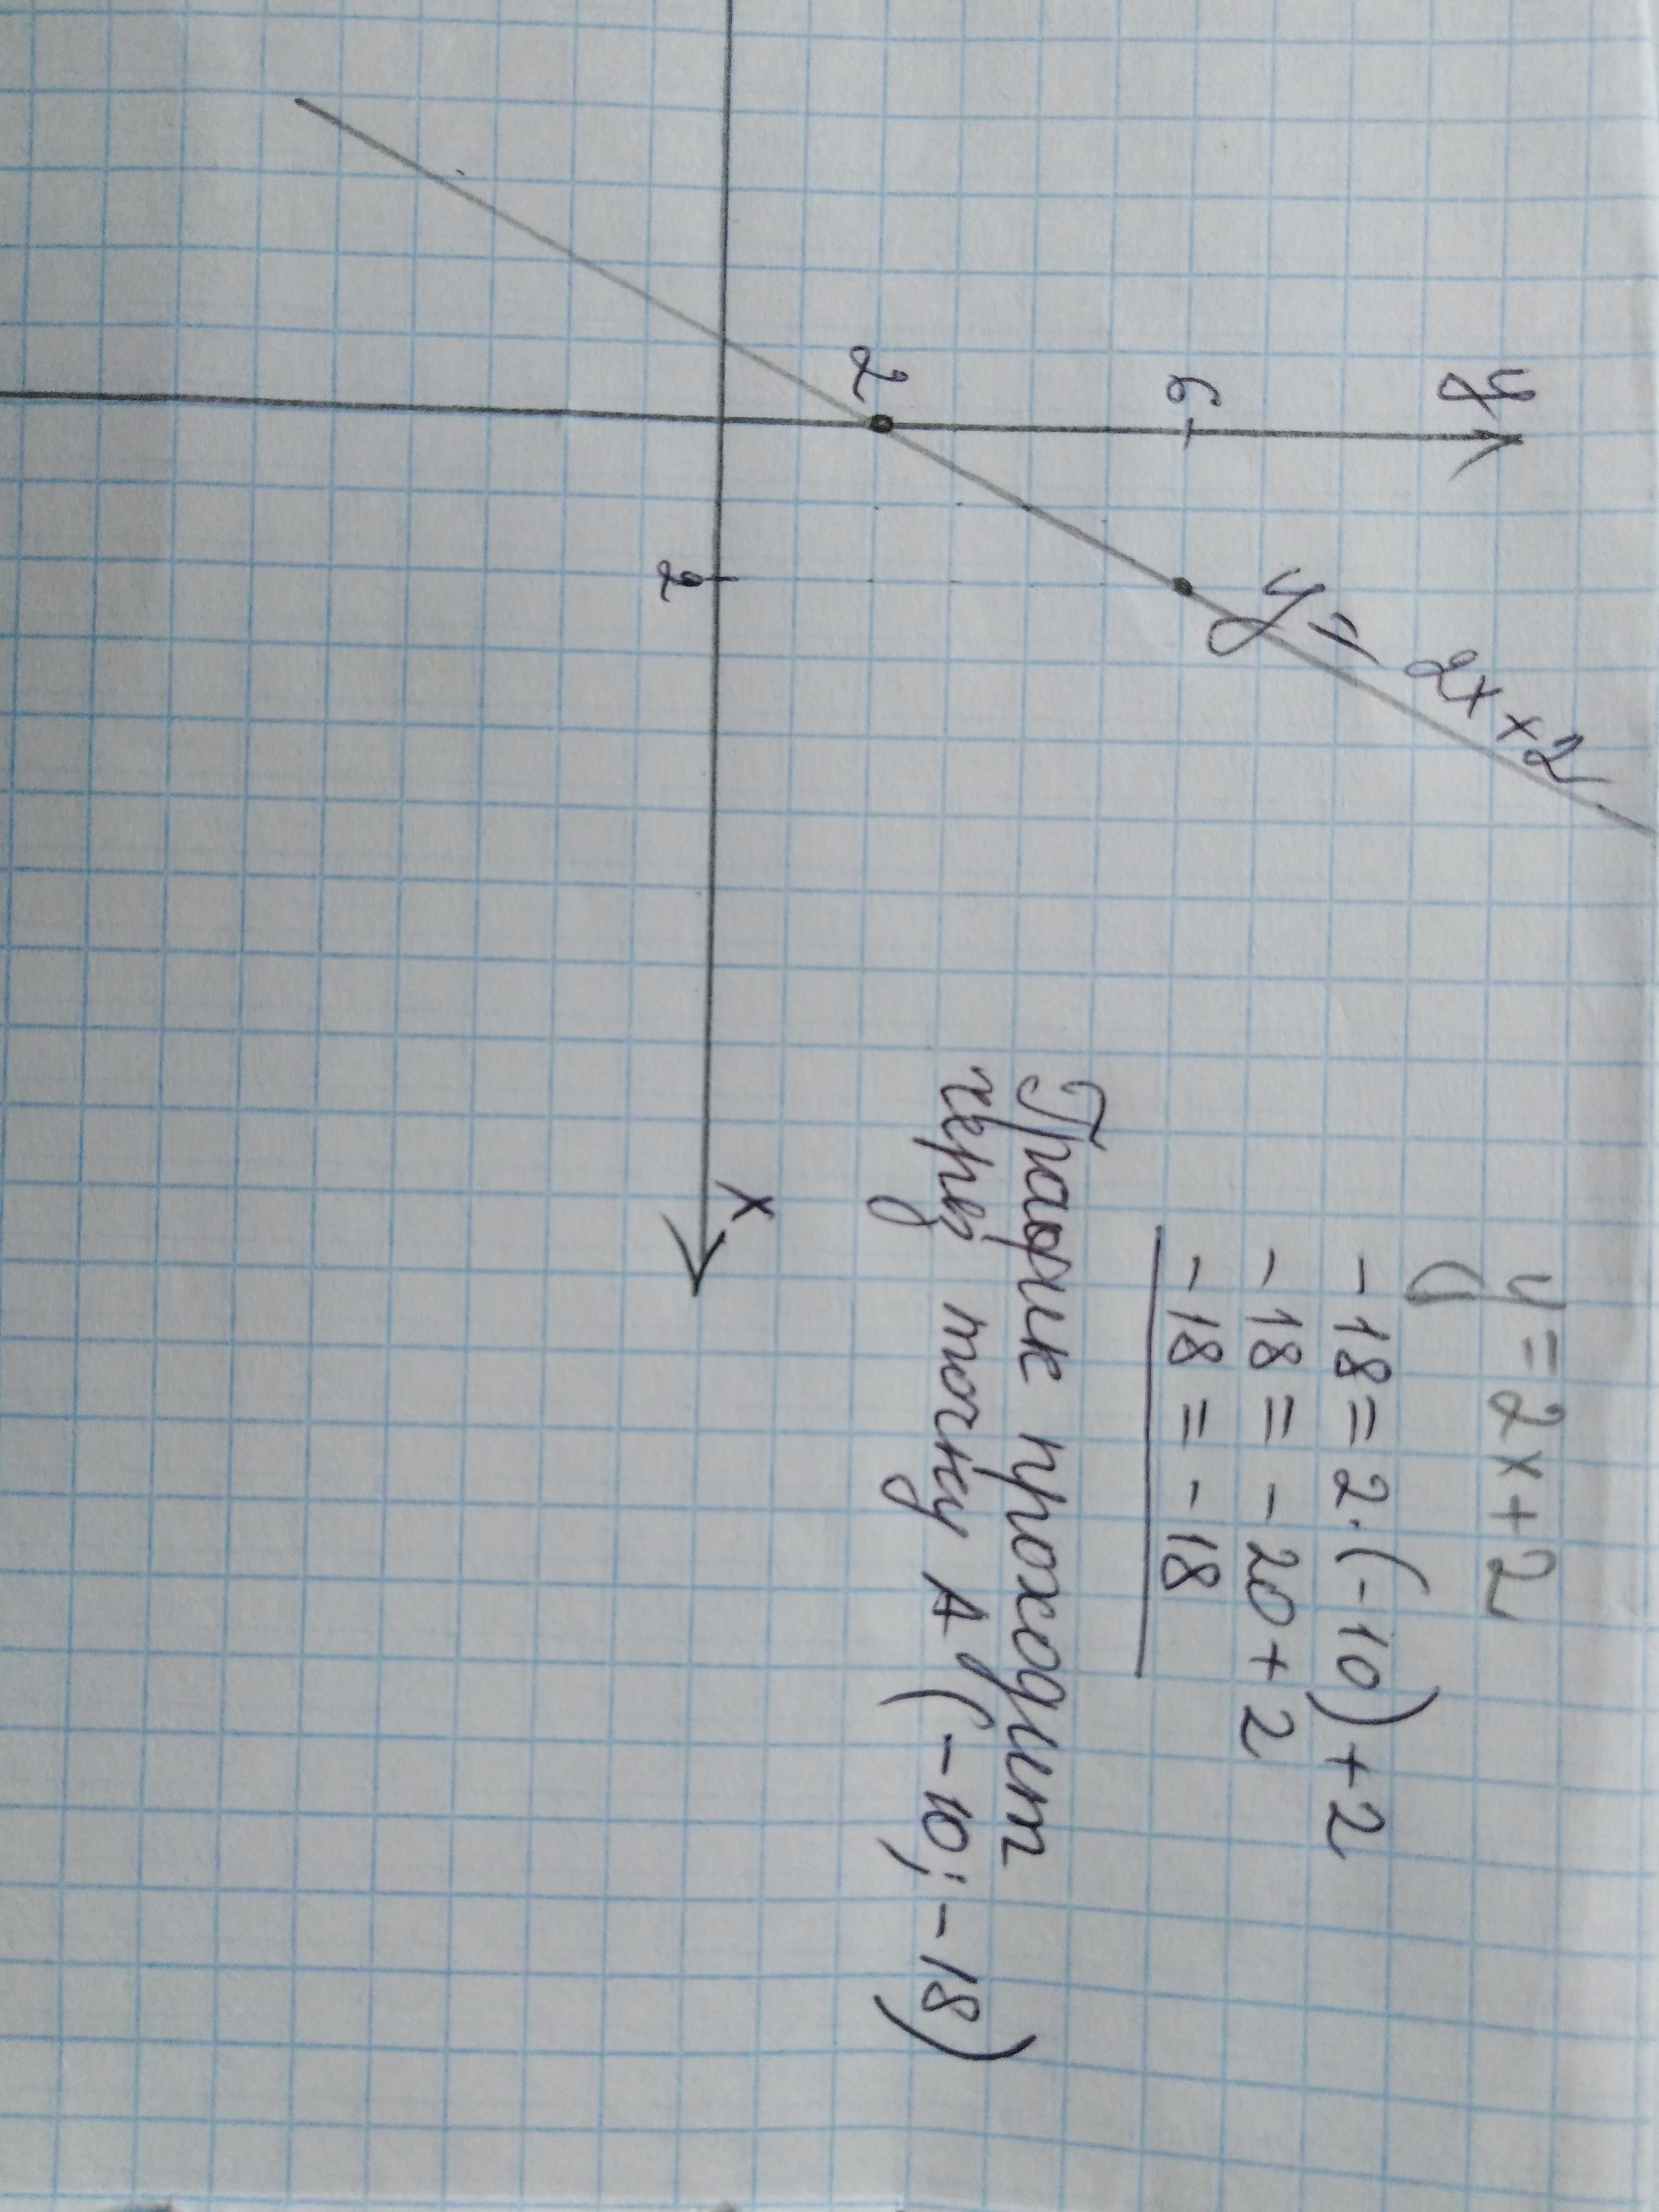 y
6
2
2
x
y = 2x + 2
y = 2x + 2
-18 = 2·(-10) + 2
-18 = -20 + 2
-18 = -18
График проходит
через точку A (-10; -18)